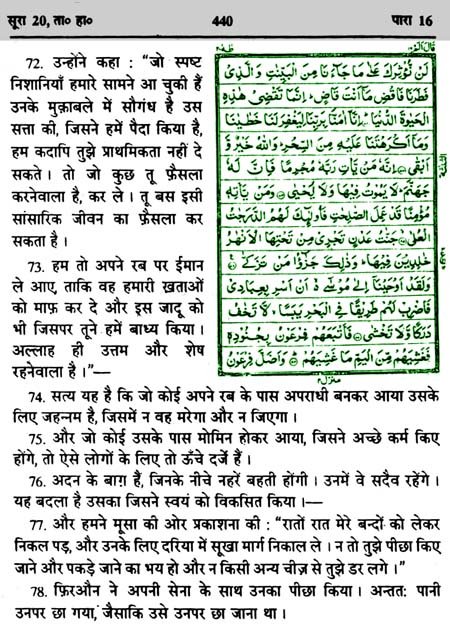 सूरा 20, ता० हा० 440 पारा 16
72. उन्होंने कहा : “जो स्पष्ट
निशानियाँ हमारे सामने आ चुकी हैं
उनके मुक़ाबले में सौगंध है उस
सत्ता की, जिसने हमें पैदा किया है,
हम कदापि तुझे प्राथमिकता नहीं दे
सकते । तो जो कुछ तू फ़ैसला
करनेवाला है, कर ले । तू बस इसी
सांसारिक जीवन का फ़ैसला कर
सकता है ।
73. हम तो अपने रब पर ईमान
ले आए, ताकि वह हमारी ख़ताओं
को माफ़ कर दे और इस जादू को
भी जिसपर तूने हमें बाध्य किया ।
अल्लाह ही उत्तम और शेष
रहनेवाला है ।”—
قال الم ١٦ طٰهٰ ٢٠
لَنْ نُّؤْثِرَكَ عَلٰى مَا جَآءَنَا مِنَ الْبَيِّنٰتِ وَالَّذِيْ
فَطَرَنَا فَاقْضِ مَآ اَنْتَ قَاضٍ ؕ اِنَّمَا تَقْضِيْ هٰذِهِ
الْحَيٰوةَ الدُّنْيَا ؕ اِنَّآ اٰمَنَّا بِرَبِّنَا لِيَغْفِرَ لَنَا خَطٰيٰنَا
وَمَآ اَكْرَهْتَنَا عَلَيْهِ مِنَ السِّحْرِ ؕ وَاللّٰهُ خَيْرٌ وَّ
اَبْقٰى اِنَّهٗ مَنْ يَّاْتِ رَبَّهٗ مُجْرِمًا فَاِنَّ لَهٗ
جَهَنَّمَ ؕ لَا يَمُوْتُ فِيْهَا وَلَا يَحْيٰى وَمَنْ يَّاْتِهٖ
مُؤْمِنًا قَدْ عَمِلَ الصّٰلِحٰتِ فَاُولٰٓئِكَ لَهُمُ الدَّرَجٰتُ
الْعُلٰى جَنّٰتُ عَدْنٍ تَجْرِيْ مِنْ تَحْتِهَا الْاَنْهٰرُ
خٰلِدِيْنَ فِيْهَا ؕ وَذٰلِكَ جَزٰٓؤُا مَنْ تَزَكّٰى
وَلَقَدْ اَوْحَيْنَآ اِلٰى مُوْسٰٓى اَنْ اَسْرِ بِعِبَادِيْ
فَاضْرِبْ لَهُمْ طَرِيْقًا فِي الْبَحْرِ يَبَسًا ۙ لَّا تَخٰفُ
دَرَكًا وَّلَا تَخْشٰى فَاَتْبَعَهُمْ فِرْعَوْنُ بِجُنُوْدِهٖ
فَغَشِيَهُمْ مِّنَ الْيَمِّ مَا غَشِيَهُمْ وَاَضَلَّ فِرْعَوْنُ
74. सत्य यह है कि जो कोई अपने रब के पास अपराधी बनकर आया उसके
लिए जहन्नम है, जिसमें न वह मरेगा और न जिएगा ।
75. और जो कोई उसके पास मोमिन होकर आया, जिसने अच्छे कर्म किए
होंगे, तो ऐसे लोगों के लिए तो ऊँचे दर्जे हैं ।
76. अदन के बाग़ हैं, जिनके नीचे नहरें बहती होंगी । उनमें वे सदैव रहेंगे ।
यह बदला है उसका जिसने स्वयं को विकसित किया ।—
77. और हमने मूसा की ओर प्रकाशना की : “रातों रात मेरे बन्दों को लेकर
निकल पड़, और उनके लिए दरिया में सूखा मार्ग निकाल ले । न तो तुझे पीछा किए
जाने और पकड़े जाने का भय हो और न किसी अन्य चीज़ से तुझे डर लगे ।”
78. फ़िरऔन ने अपनी सेना के साथ उनका पीछा किया । अन्ततः पानी
उनपर छा गया, जैसाकि उसे उनपर छा जाना था ।